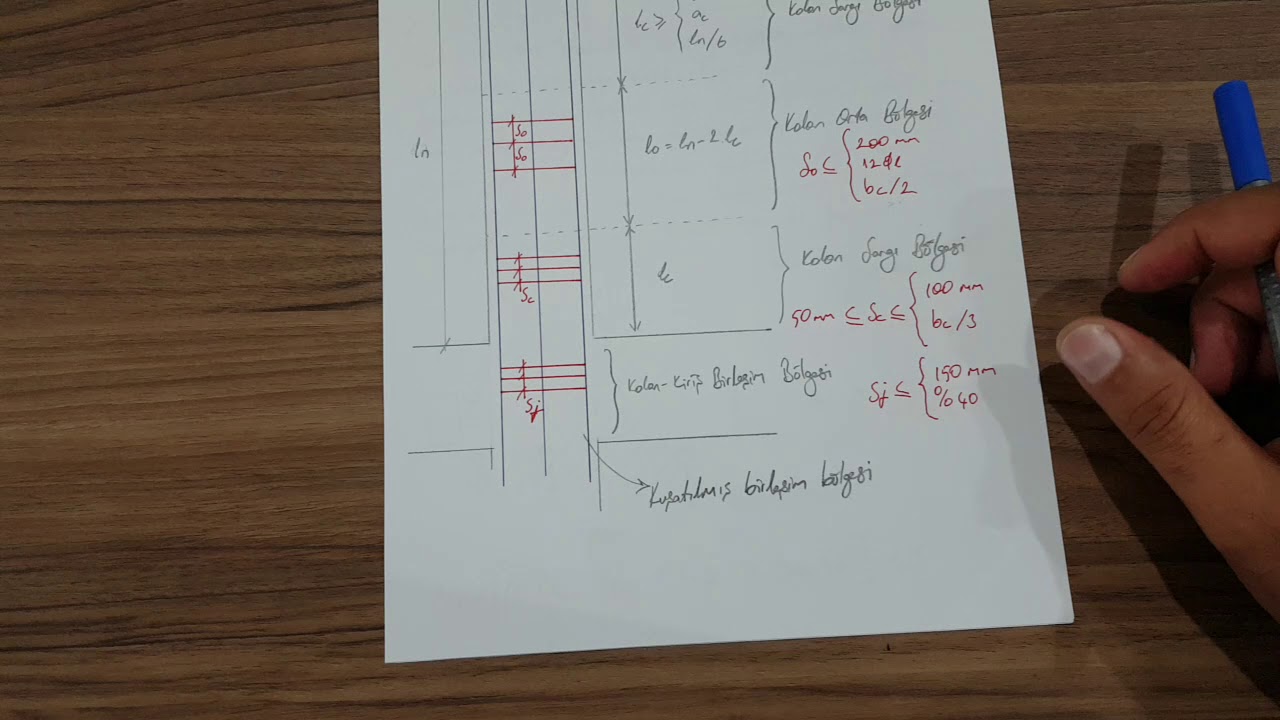 Kolon Sargı Bölgesi
lc ≥ { ac
ln/6
ln
So
So
lo = ln - 2.lc
Kolon Orta Bölgesi
So ≤ { 200 mm
12Φl
bc/2
lc
Kolon Sargı Bölgesi
Sc
50mm ≤ Sc ≤ { 100 mm
bc/3
Sj
Kolon-Kiriş Birleşim Bölgesi
Sj ≤ { 150 mm
%40
Kuşatılmış birleşim bölgesi